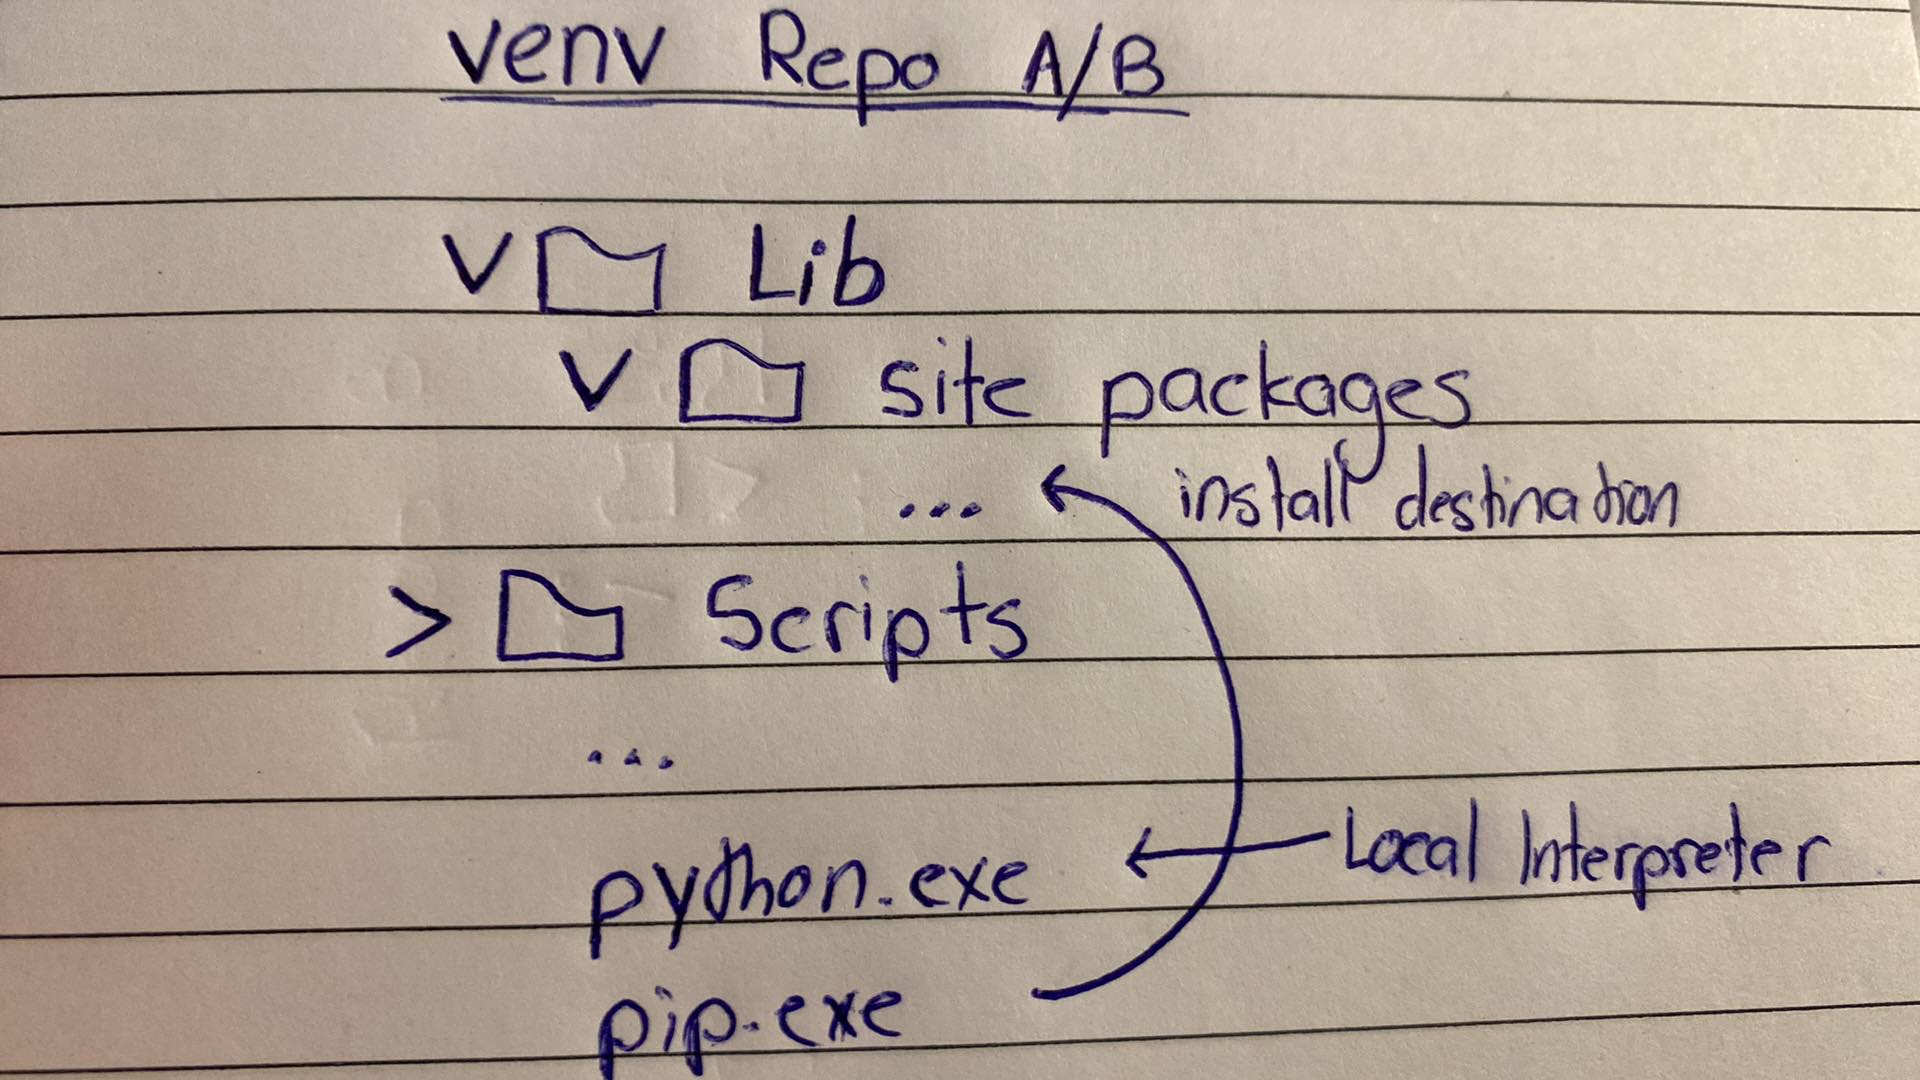 venv Repo A/B
Lib
site packages
... install destination
> Scripts
...
python.exe Local Interpreter
pip.exe